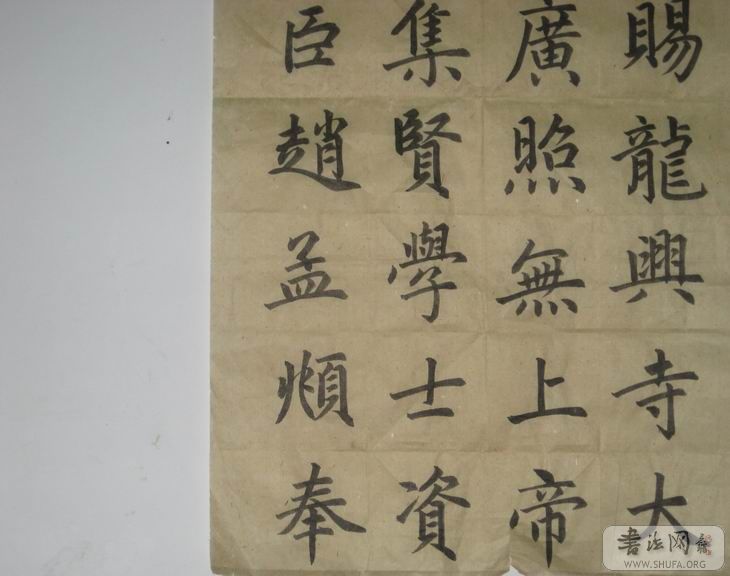 賜龍興寺大
廣照無上帝
集賢學士資
臣趙孟頫奉
书法网
WWW.SHUFA.ORG